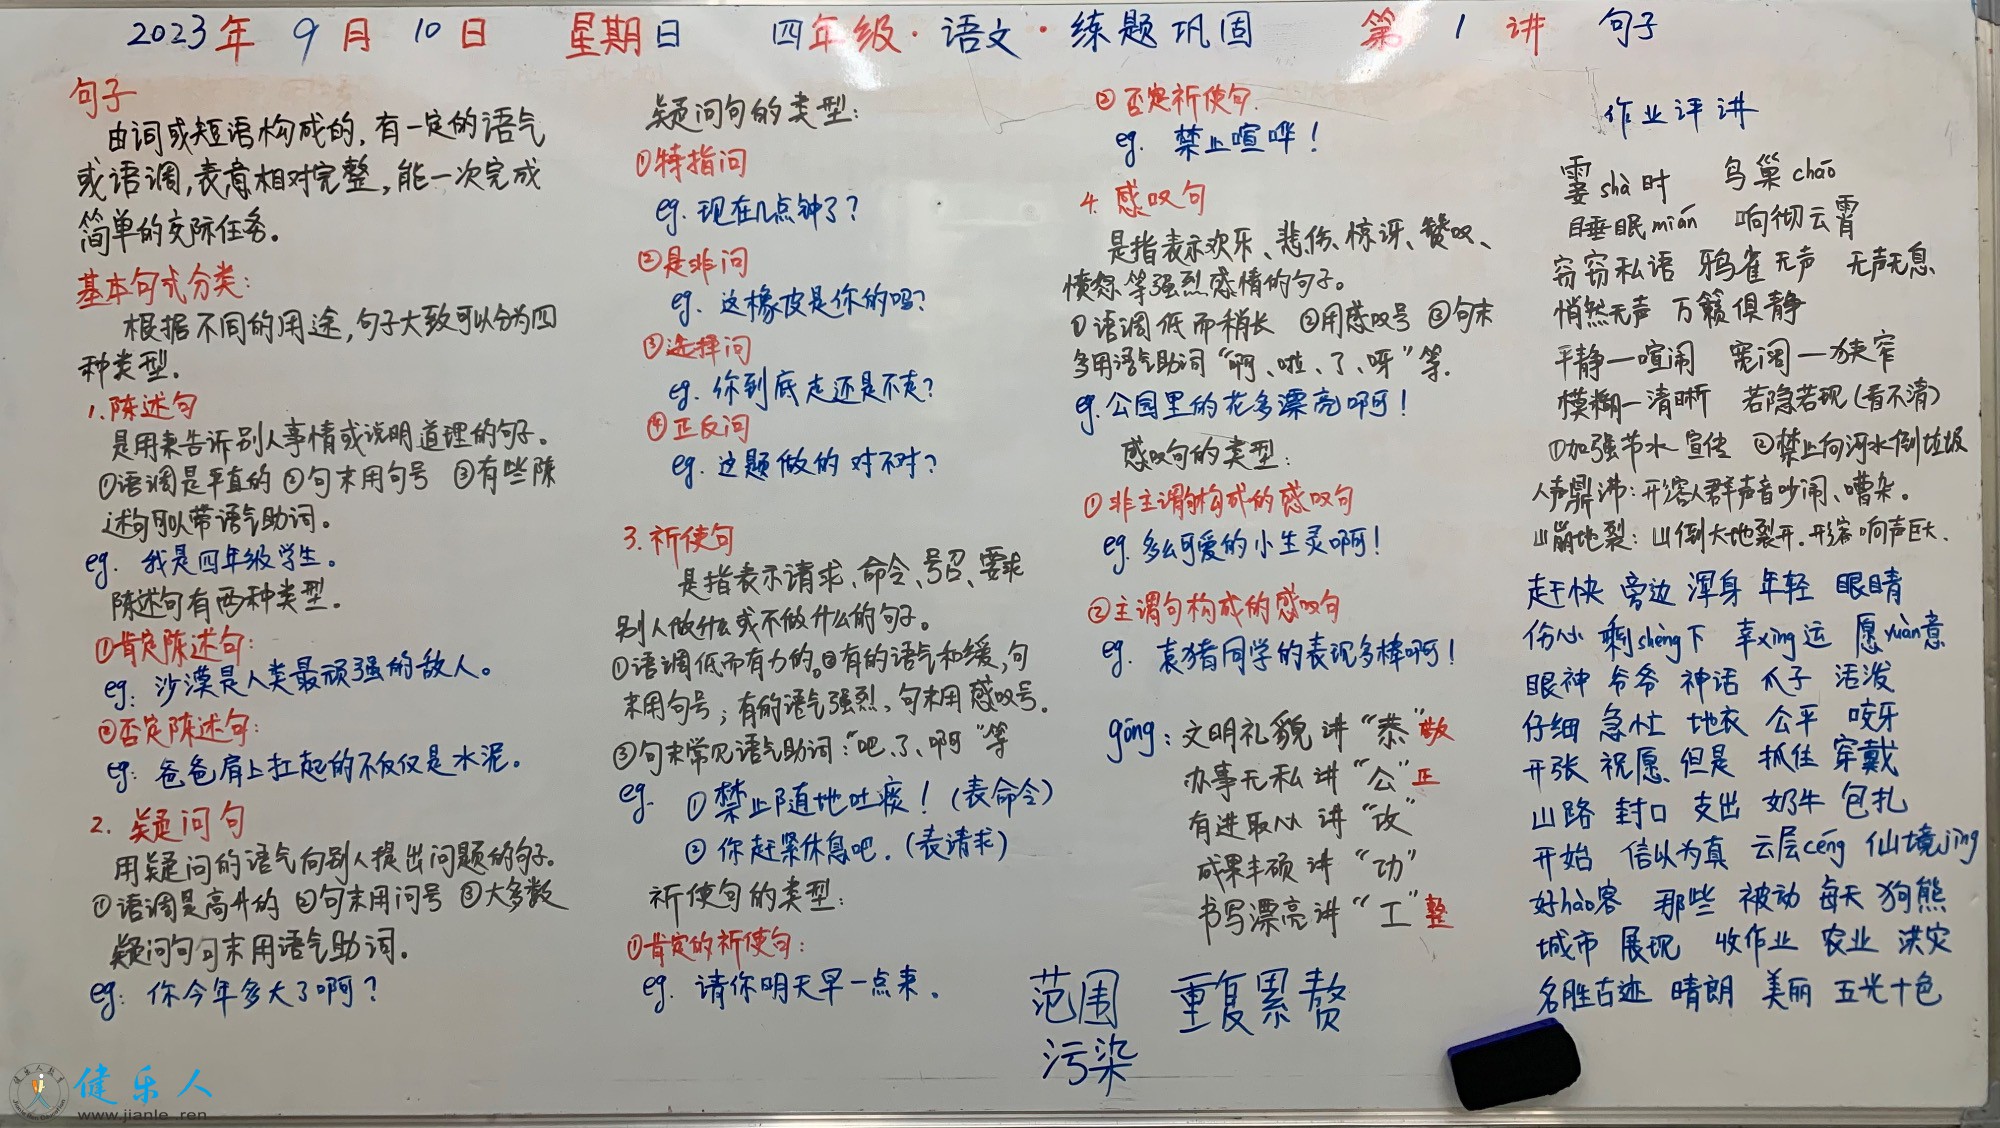 2023年 9月 10日 星期日 四年级·语文·练题巩固 第 1 讲 句子
句子
由词或短语构成的,有一定的语气
或语调,表意相对完整,能一次完成
简单的交际任务。
基本句式分类:
根据不同的用途,句子大致可以分为四
种类型.
1.陈述句
是用来告诉别人事情或说明道理的句子。
①语调是平直的 ②句末用句号 ③有些陈
述句可以带语气助词。
eg. 我是四年级学生。
陈述句有两种类型.
①肯定陈述句:
eg: 沙漠是人类最顽强的敌人。
②否定陈述句:
eg: 爸爸肩上扛起的不仅仅是水泥。
2. 疑问句
用疑问的语气向别人提出问题的句子。
①语调是高升的 ②句末用问号 ③大多数
疑问句句末用语气助词.
eg: 你今年多大了啊?
疑问句的类型:
①特指问
eg. 现在几点钟了?
②是非问
eg. 这橡皮是你的吗?
③选择问
eg. 你到底走还是不走?
④正反问
eg. 这题做的对不对?
3. 祈使句
是指表示请求、命令、号召、要求
别人做什么或不做什么的句子。
①语调低而有力的。②有的语气和缓,句
末用句号;有的语气强烈,句末用感叹号.
③句末常见语气助词:“吧、了、啊”等
eg. ①禁止随地吐痰!(表命令)
②你赶紧休息吧.(表请求)
祈使句的类型:
①肯定的祈使句:
eg. 请你明天早一点来.
②否定祈使句.
eg. 禁止喧哗!
4. 感叹句
是指表示欢乐、悲伤、惊讶、赞叹、
愤怒等强烈感情的句子。
①语调低而稍长 ②用感叹号 ③句末
多用语气助词“啊、啦、了、呀”等.
eg.公园里的花多漂亮啊!
感叹句的类型:
①非主谓句构成的感叹句
eg.多么可爱的小生灵啊!
②主谓句构成的感叹句
eg. 袁猪同学的表现多棒啊!
gōng: 文明礼貌讲“恭”敬
办事无私讲“公”正
有进取心讲“攻”
成果丰硕讲“功”
书写漂亮讲“工”整
范围 重复累赘
污染
作业评讲
霎shà时 鸟巢cháo
睡眠mián 响彻云霄
窃窃私语 鸦雀无声 无声无息
悄然无声 万籁俱静
平静—喧闹 宽阔—狭窄
模糊—清晰 若隐若现(看不清)
①加强节水宣传 ②禁止向河水倒垃圾
人声鼎沸:形容人群声音吵闹、嘈杂。
山崩地裂:山倒大地裂开.形容响声巨大.
赶快 旁边 浑身 年轻 眼睛
伤心 剩shèng下 幸xìng运 愿yuàn意
眼神 爷爷 神话 爪子 活泼
仔细 急忙 地衣 公平 咬牙
开张 祝愿 但是 抓住 穿戴
山路 封口 支出 奶牛 包扎
开始 信以为真 云层céng 仙境jìng
好hào客 那些 被动 每天 狗熊
城市 展现 收作业 农业 洪灾
名胜古迹 晴朗 美丽 五光十色
健乐人
www.jianle.ren